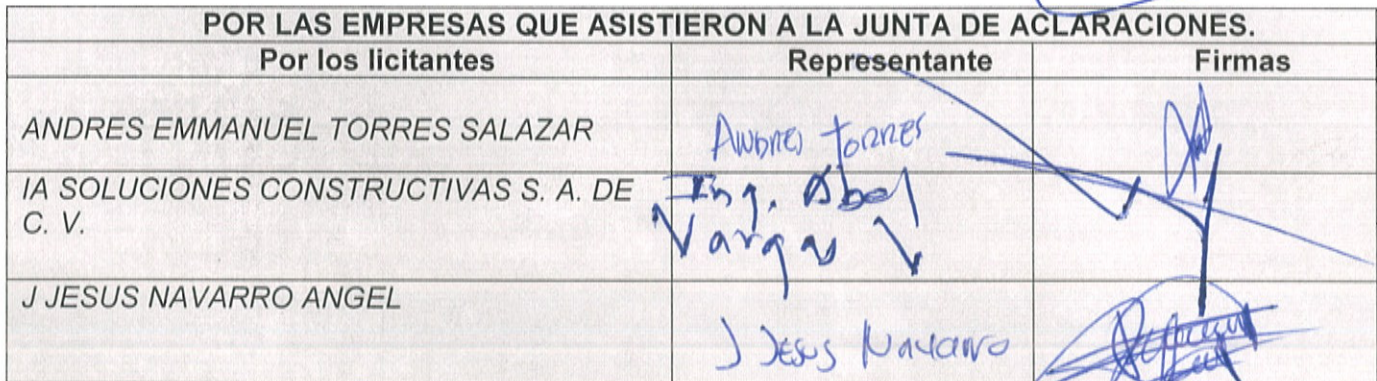 POR LAS EMPRESAS QUE ASISTIERON A LA JUNTA DE ACLARACIONES.
Por los licitantes Representante Firmas
ANDRES EMMANUEL TORRES SALAZAR Andres Torres
IA SOLUCIONES CONSTRUCTIVAS S. A. DE Ing. Abel
C. V. Vargas V
J JESUS NAVARRO ANGEL
J Jesus Navarro